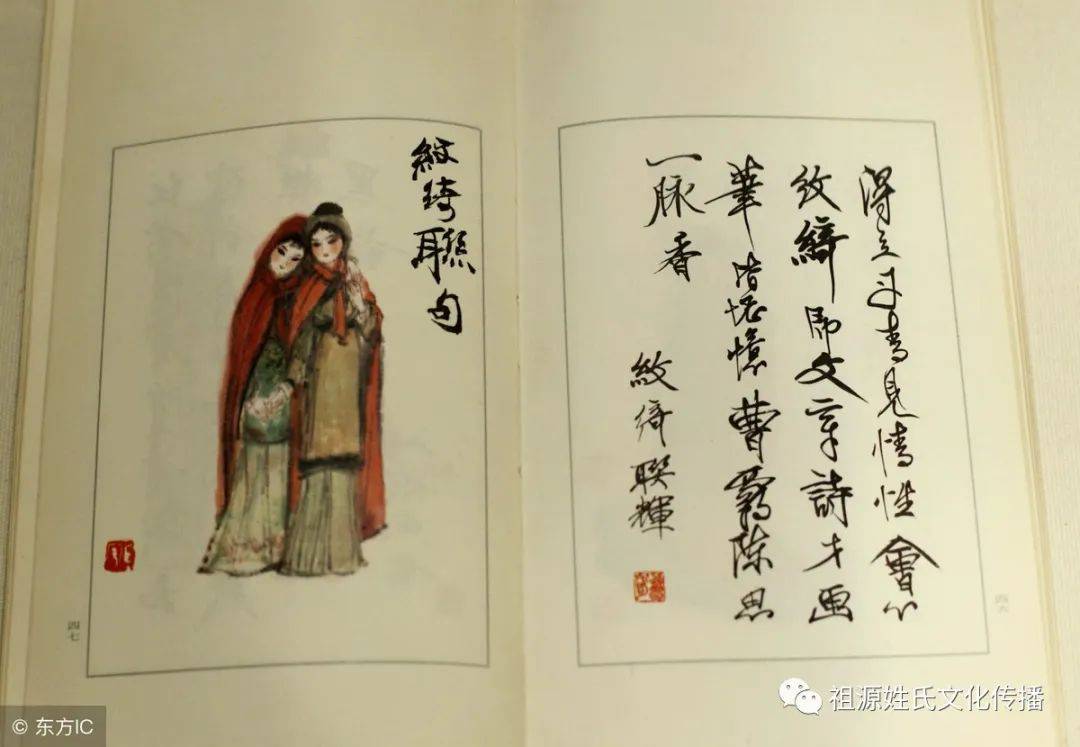 得意丹青見情性會心
紋綺即文章詩才画
筆皆堪憶曹霸陈思
一脉香
紋綺聯輝
四六
紋琦聯句
四七
祖源姓氏文化传播
© 东方IC